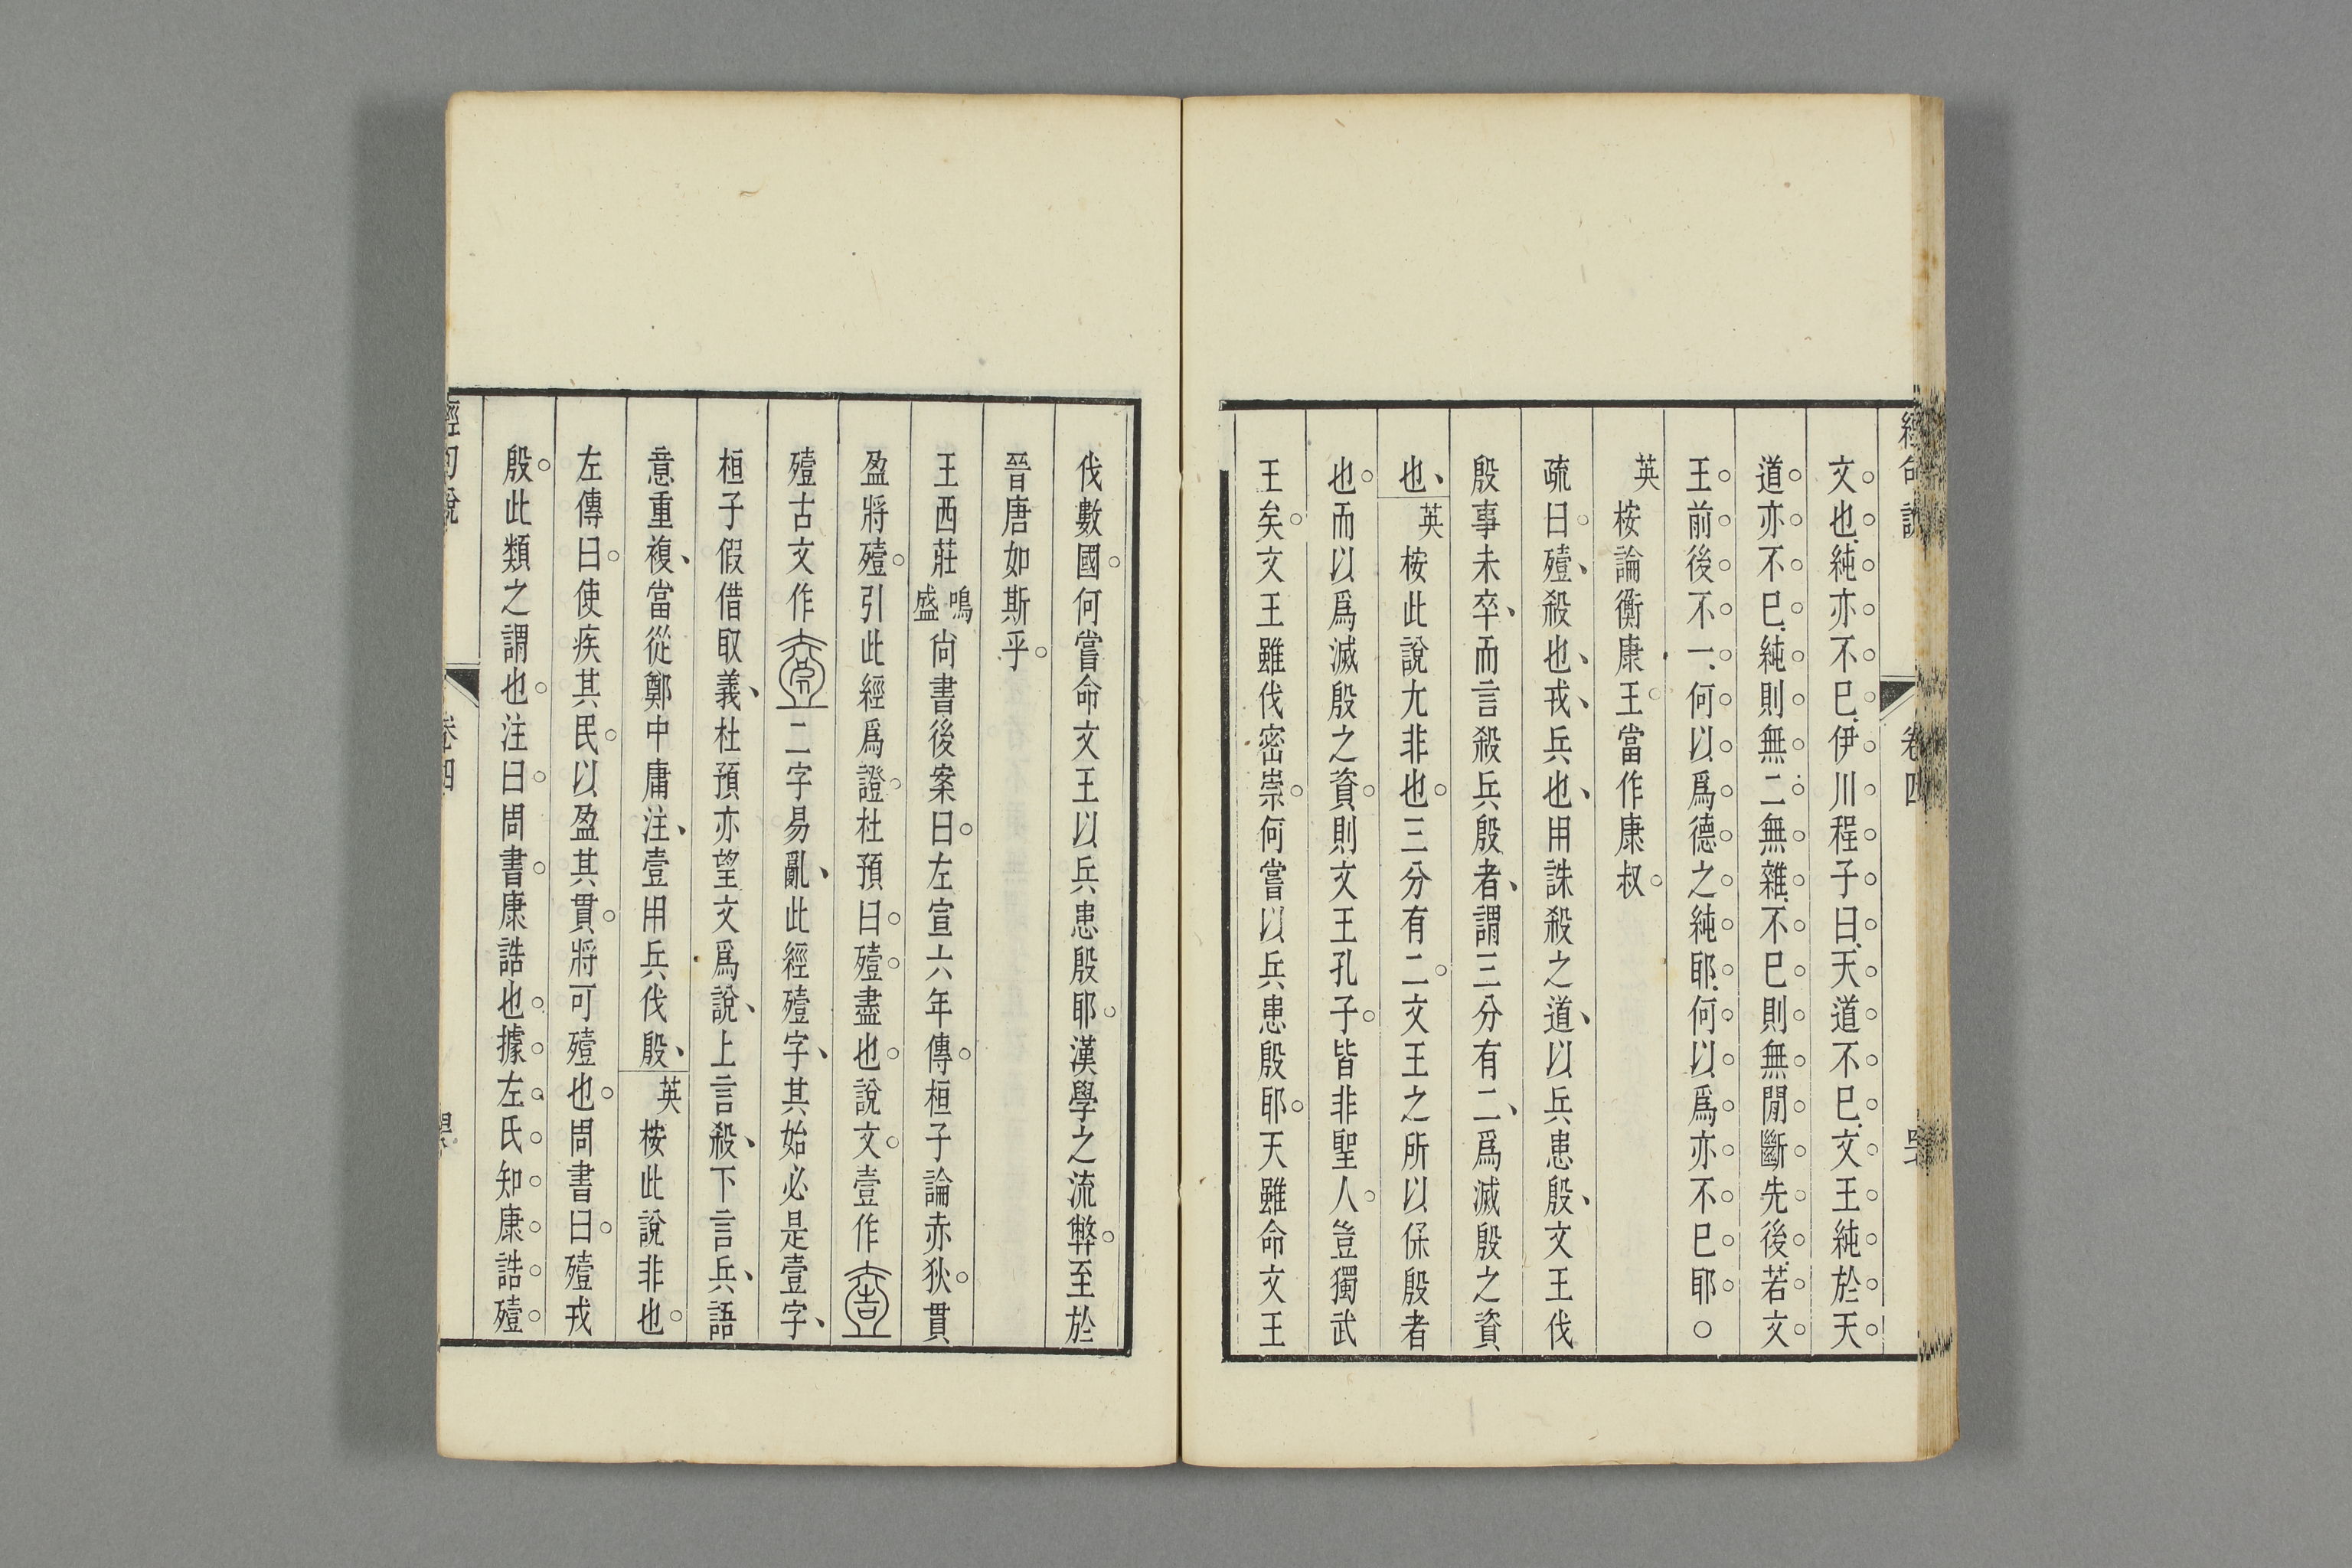 經句說 卷四
文也純亦不已伊川程子曰天道不已文王純於天
道亦不已純則無二無雜不已則無閒斷先後若文
王前後不一何以爲德之純耶何以爲亦不已耶○
英桉論衡康王當作康叔
疏曰殪殺也戎兵也用誅殺之道以兵患殷文王伐
殷事未卒而言殺兵殷者謂三分有二爲滅殷之資
也英桉此說尢非也三分有二文王之所以保殷者
也而以爲滅殷之資則文王孔子皆非聖人豈獨武
王矣文王雖伐密崇何嘗以兵患殷耶天雖命文王
伐數國何嘗命文王以兵患殷耶漢學之流弊至於
晉唐如斯乎
王西莊鳴盛尙書後案曰左宣六年傳桓子論赤狄貫
盈將殪引此經爲證杜預曰殪盡也說文壹作
殪古文作二字易亂此經殪字其始必是壹字
桓子假借取義杜預亦望文爲說上言殺下言兵語
意重複當從鄭中庸注壹用兵伐殷英桉此說非也
左傳曰使疾其民以盈其貫將可殪也周書曰殪戎
殷此類之謂也注曰周書康誥也據左氏知康誥殪
經句說 卷四